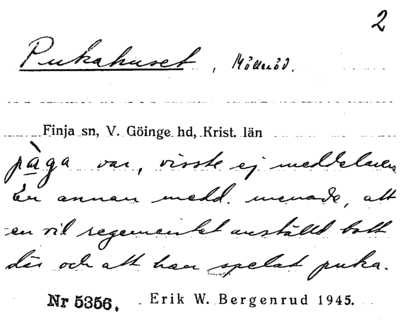 2
Pukahuset, Mölleröd.
Finja sn, V. Göinge hd, Krist. län
påga var, visste ej meddelaren
En annan medd. menade, att
en vil regementet anställd bott
där och att han spelat puka.
Nr 5356. Erik W. Bergenrud 1945.